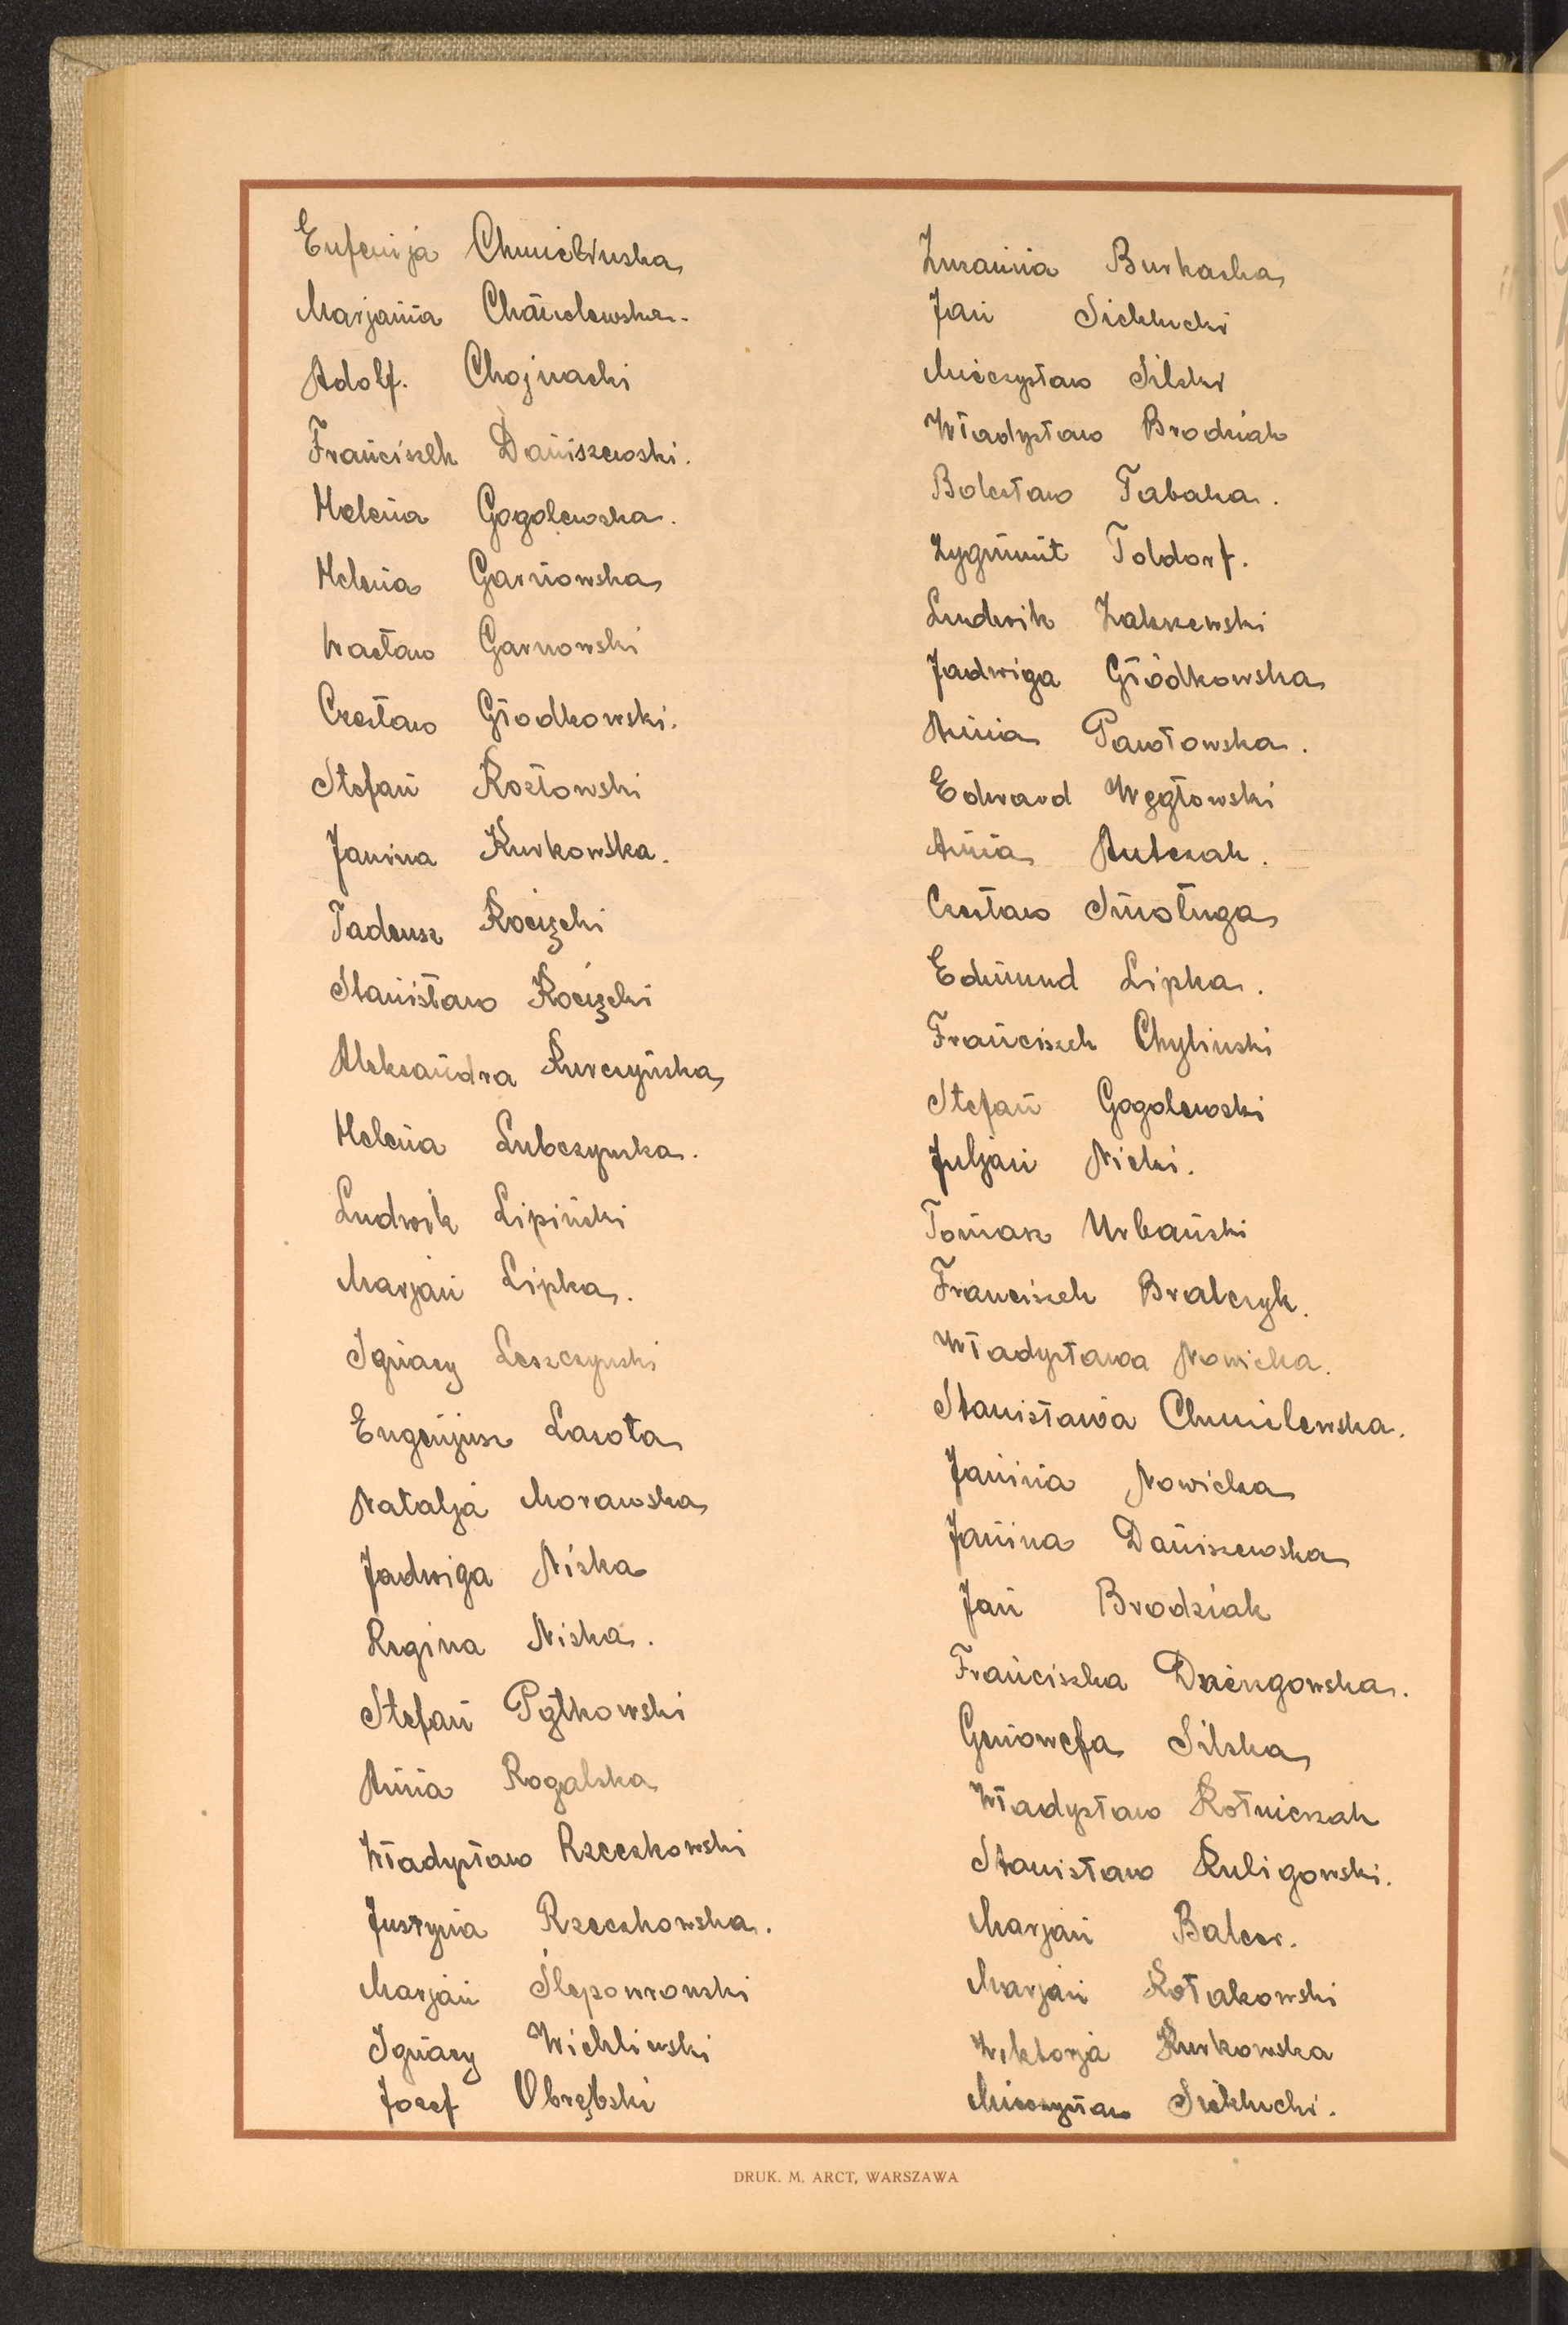 Eufenija Chmielinska
Marjanna Chmielewska.
Adolf. Chojnacki
Franciszek Daniszewski.
Helena Gogolewska.
Helena Garnowska
Wacław Garnowski
Czesław Głodkowski.
Stefan Kozłowski
Janina Kurkowska.
Tadeusz Kocięcki
Stanisław Kocięcki
Aleksandra Kurczyńska
Helena Lubczynska.
Ludwik Lipiński
Marjan Lipka.
Ignacy Leszczynski
Eugenjusz Lawota
Natalja Morawska
Jadwiga Niska
Regina Niska.
Stefan Pątkowski
Anna Rogalska
Władysław Rzeczkowski
Justyna Rzeczkowska.
Marjan Ślepowronski
Ignacy Wichlinski
Jozef Obrębski
Zuzanna Burkacka
Jan Siekłucki
Mieczysław Silski
Władysław Brodziak
Bolesław Tabaka.
Zygmunt Toldorf.
Ludwik Zakrzewski
Jadwiga Głódkowska
Anna Pawłowska.
Edward Węgłowski
Anna Antczak.
Czesław Smoługa
Edmund Lipka.
Franciszek Chylinski
Stefan Gogolewski
Juljan Nicki.
Tomasz Urbański
Franciszek Bralczyk.
Władysława Nowicka.
Stanisława Chmilewska.
Janina Nowicka
Janina Daniszewska
Jan Brodziak
Franciszka Dzięzgowska.
Genowefa Silska
Władysław Kołnierzak
Stanisław Kuligowski.
Marjan Balcer.
Marjan Kołakowski
Wiktorja Kurkowska
Mieczysław Siekłucki.
DRUK. M. ARCT, WARSZAWA